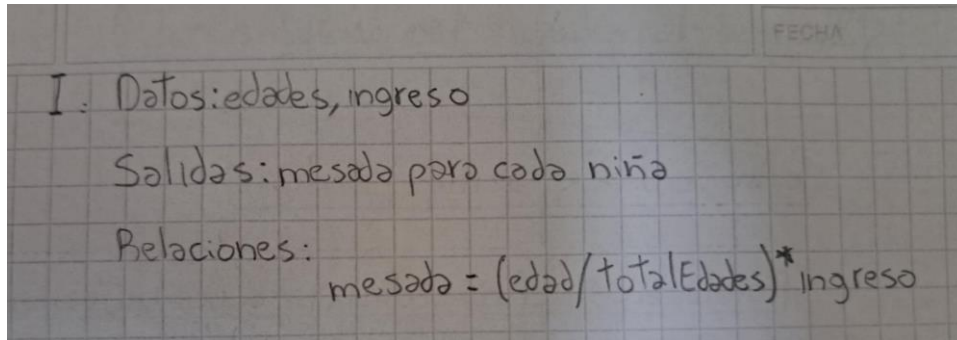 FECHA
I. Datos: edades, ingreso
Salidas: mesada para cada niña
Relaciones:
mesada = (edad/totalEdades)* ingreso